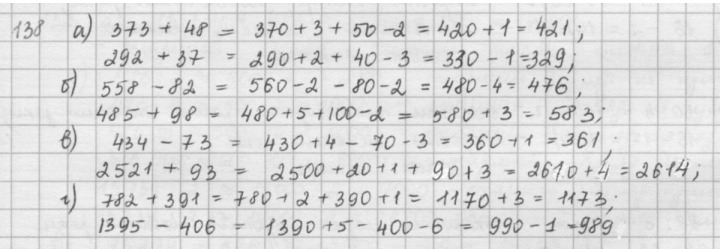 138 а) 373 + 48 = 370 + 3 + 50 - 2 = 420 + 1 = 421;
292 + 37 = 290 + 2 + 40 - 3 = 330 - 1 = 329;
б) 558 - 82 = 560 - 2 - 80 - 2 = 480 - 4 = 476;
485 + 98 = 480 + 5 + 100 - 2 = 580 + 3 = 583;
в) 434 - 73 = 430 + 4 - 70 - 3 = 360 + 1 = 361;
2521 + 93 = 2500 + 20 + 1 + 90 + 3 = 2610 + 4 = 2614;
г) 782 + 391 = 780 + 2 + 390 + 1 = 1170 + 3 = 1173;
1395 - 406 = 1390 + 5 - 400 - 6 = 990 - 1 = 989